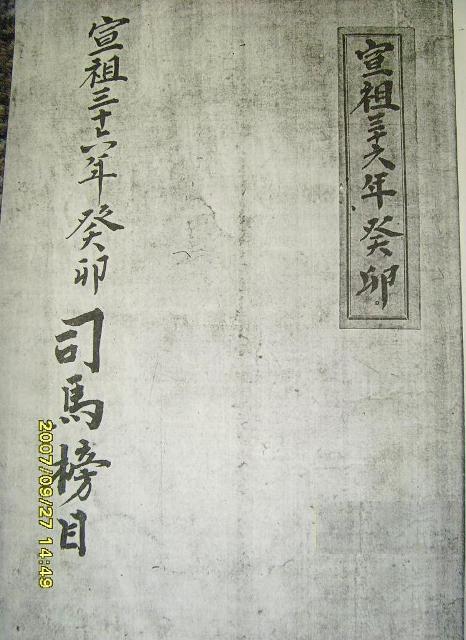 宣祖三十六年癸卯
宣祖三十六年癸卯 司馬榜目
2007/09/27 14:49